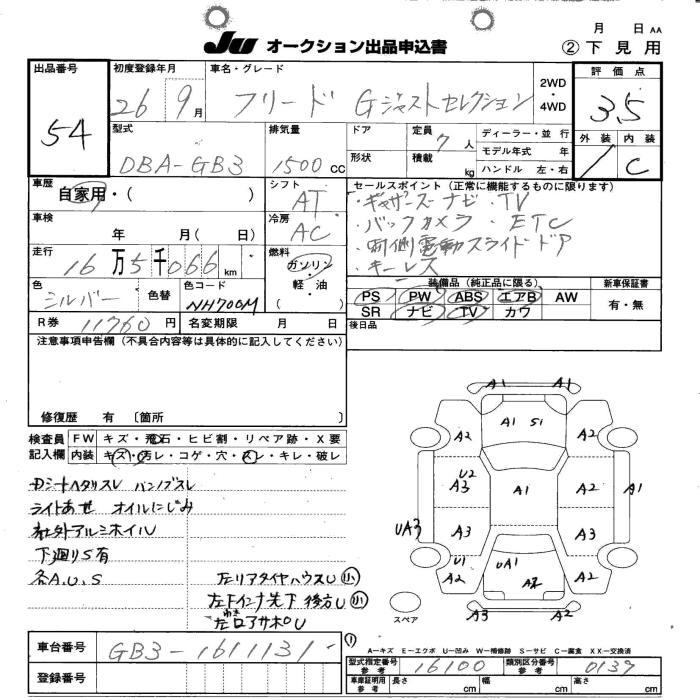 月 日 AA
JU オークション出品申込書 ② 下見用
出品番号 54
初度登録年月 26 9月
車名・グレード フリード Gジャストセレクション
2WD・4WD
評価点 3.5
外装 内装 C
型式 DBA-GB3
排気量 1500 cc
ドア 形状
定員 7 人
積載 kg
ディーラー・並行
モデル年式 年
ハンドル 左・右
車歴 自家用・( )
シフト AT
車検 年 月( 日)
冷房 AC
走行 16万5千066km
燃料 ガソリン・軽油・( )
色 シルバー 色替
色コード NH700M
R券 11760円 名変期限 月 日
セールスポイント(正常に機能するものに限ります)
・ギャザーズナビ・TV
・バックカメラ・ETC
・両側電動スライドドア
・キーレス
装備品(純正品に限る)
PS PW ABS エアB AW
SR ナビ TV カワ
新車保証書 有・無
後日品
注意事項申告欄(不具合内容等は具体的に記入してください)
修復歴 有 〔箇所 〕
検査員記入欄
FW キズ・飛石・ヒビ割・リペア跡・X要
内装 キズ・汚レ・コゲ・穴・スレ・キレ・破レ
Dシートヘタリスレ バンパブスレ
ライトあせ オイルにじみ
社外アルミホイル
下廻りS有
各A.U.S
左リアタイヤハウスU 小
A1 A1
A1 S1
A2 A2
U2
A3 A1 A2 A1
UA3 A3 A3
U1
A2 UA1 A2 A2
スペア A3 A2
A-キズ E-エクボ U-凹み W-補修跡 S-サビ C-腐食 XX-交換済
車台番号 GB3-1611131
登録番号
型式指定番号 参考 16100
類別区分番号 参考 0139
車庫証明用 参考 長さ cm 幅 cm 高さ cm